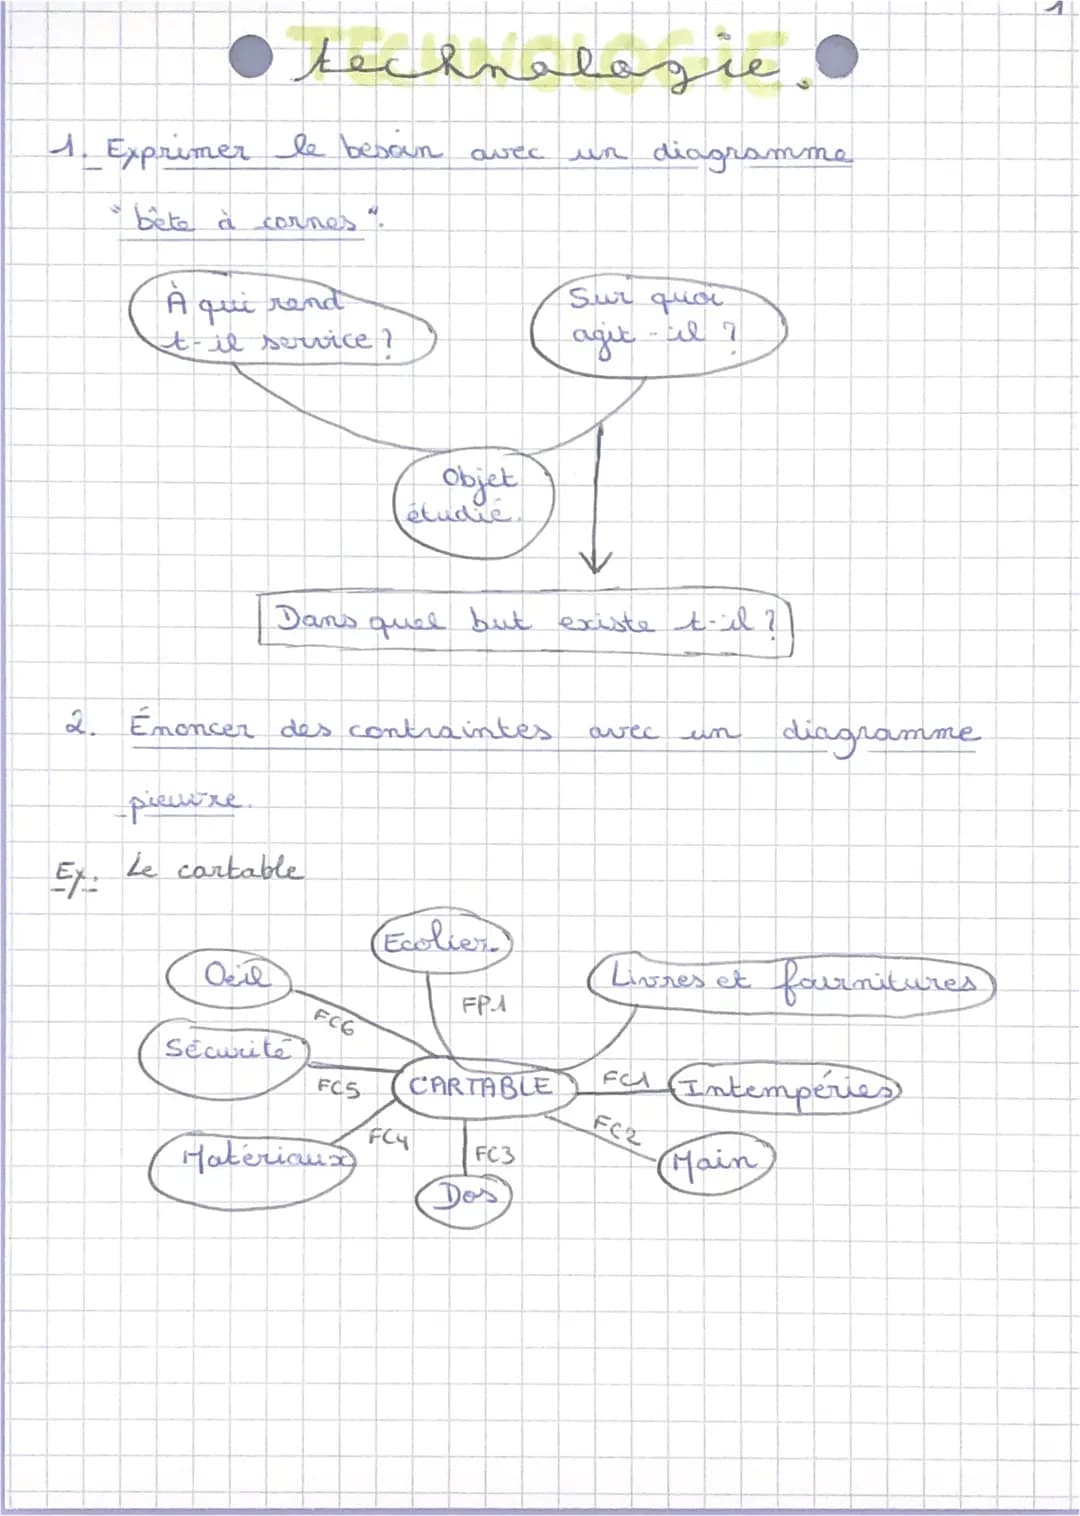 1
TECHNOLOGIE
technologie.
1. Exprimer le besoin avec un diagramme
"bête à cornes".
À qui rend
t-il service ?
Sur quoi
agit-il ?
Objet
étudié.
Dans quel but existe t-il ?
2. Énoncer des contraintes avec un diagramme
pieuvre.
Ex. Le cartable
Ecolier
Oeil
Livres et fournitures
FP1
FC6
Sécurité
FC5
CARTABLE
FC1
Intempéries
FC2
FC4
FC3
Matériaux
Main
Dos